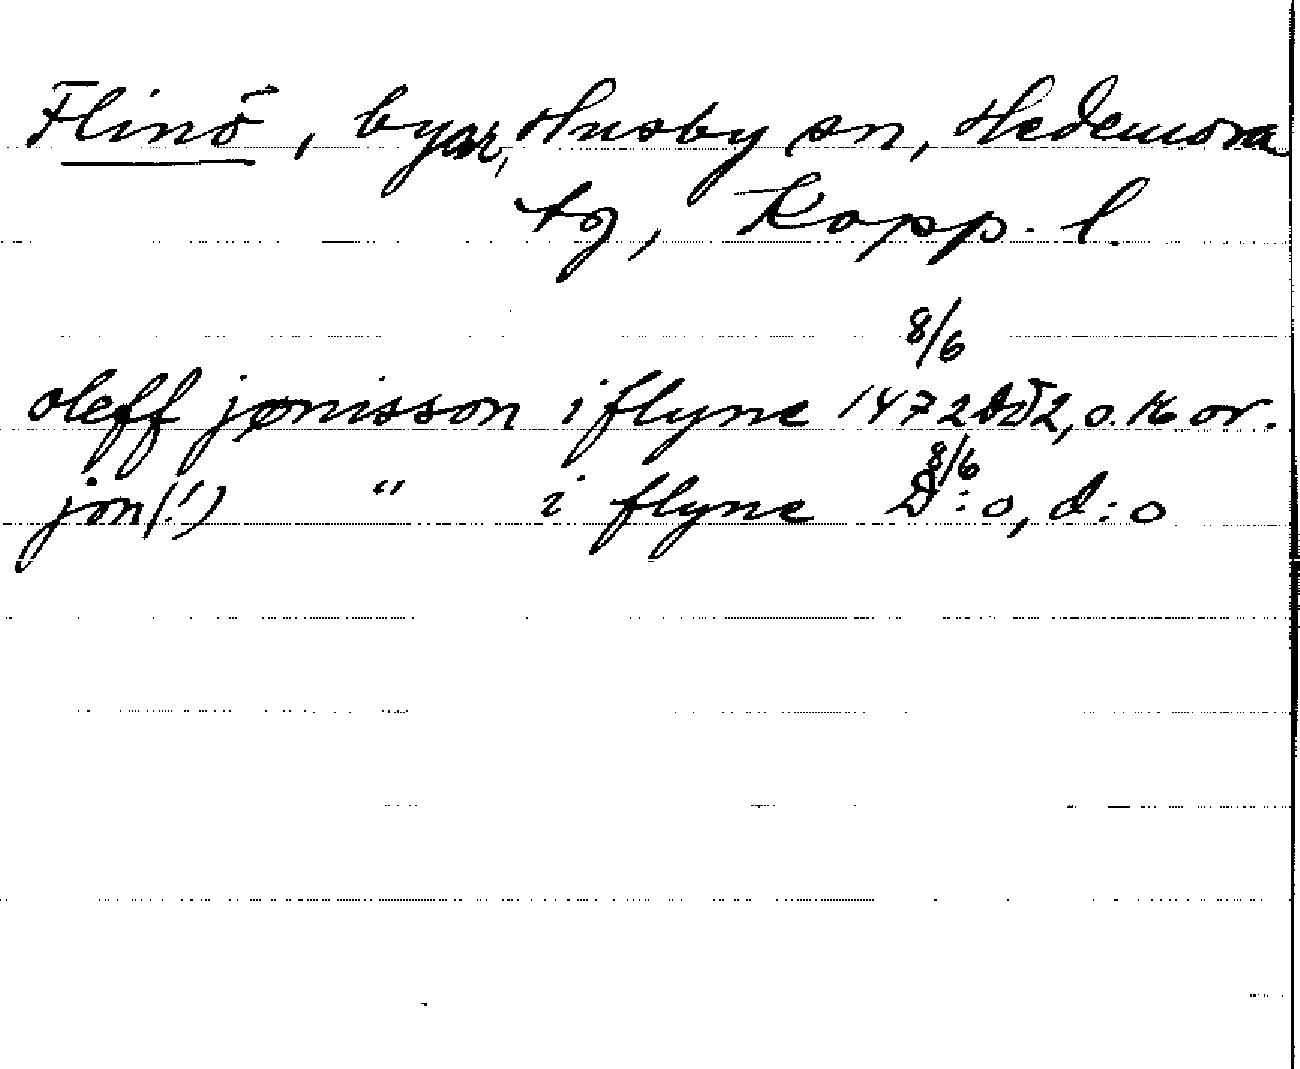 Flinö, byar, Husby sn, Hedemora
tg, Kopp. l.
8/6
oleff jønisson i flyne 1472 DD2, o. 16 or.
8/6
jon(!) " i flyne D:o, d:o